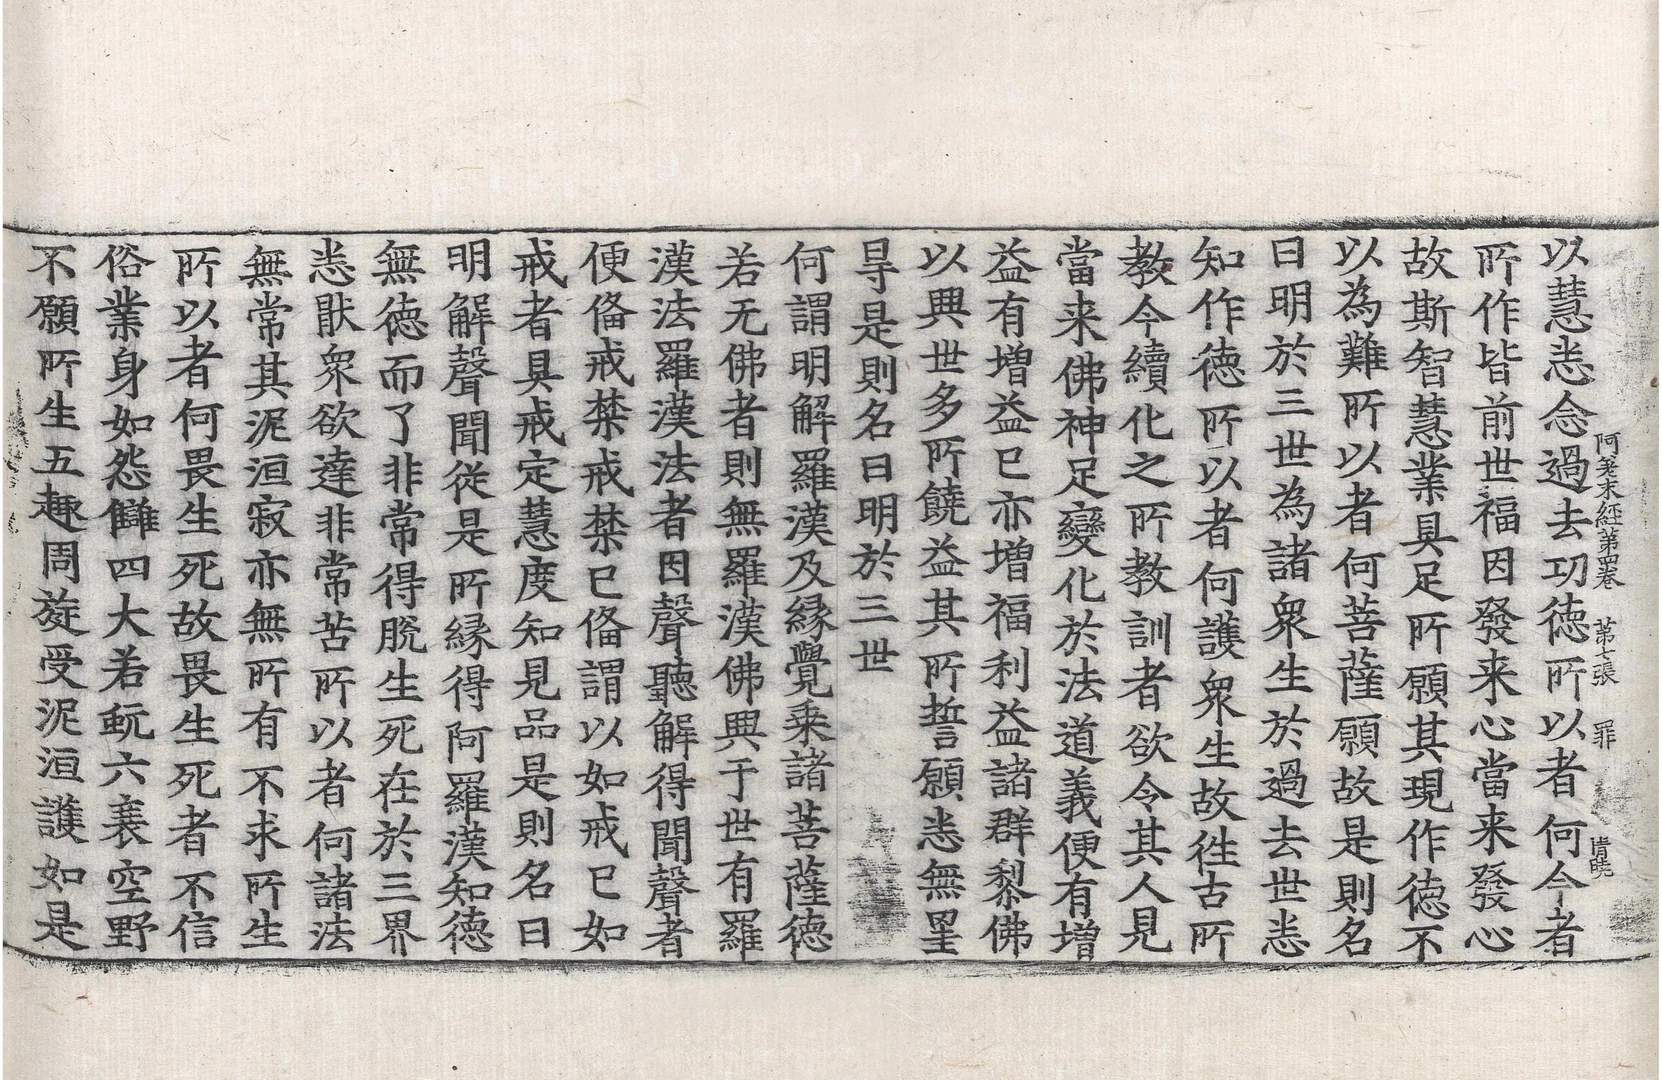 阿差末經第四卷 第七張 罪 清曉
以慧悉念過去㓛德所以者何今者
所作皆前世福因發来心當来發心
故斯智慧業具足所願其現作德不
以為難所以者何菩薩願故是則名
曰明於三世為諸衆生於過去世悉
知作德所以者何護衆生故徃古所
教今續化之所教訓者欲令其人見
當来佛神足變化於法道義便有增
益有增益已亦增福利益諸群黎佛
以興世多所饒益其所誓願悉無罣
㝵是則名曰明於三世
何謂明解羅漢及縁覺乗諸菩薩德
若无佛者則無羅漢佛興于世有羅
漢法羅漢法者因聲聽解得聞聲者
便俻戒禁戒禁已俻謂以如戒已如
戒者具戒定慧度知見品是則名曰
明解聲聞從是所縁得阿羅漢知德
無德而了非常得脫生死在於三界
悉猒衆欲達非常苦所以者何諸法
無常其泥洹寂亦無所有不求所生
所以者何畏生死故畏生死者不信
俗業身如怨讎四大若蚖六衰空野
不願所生五趣周旋受泥洹護如是